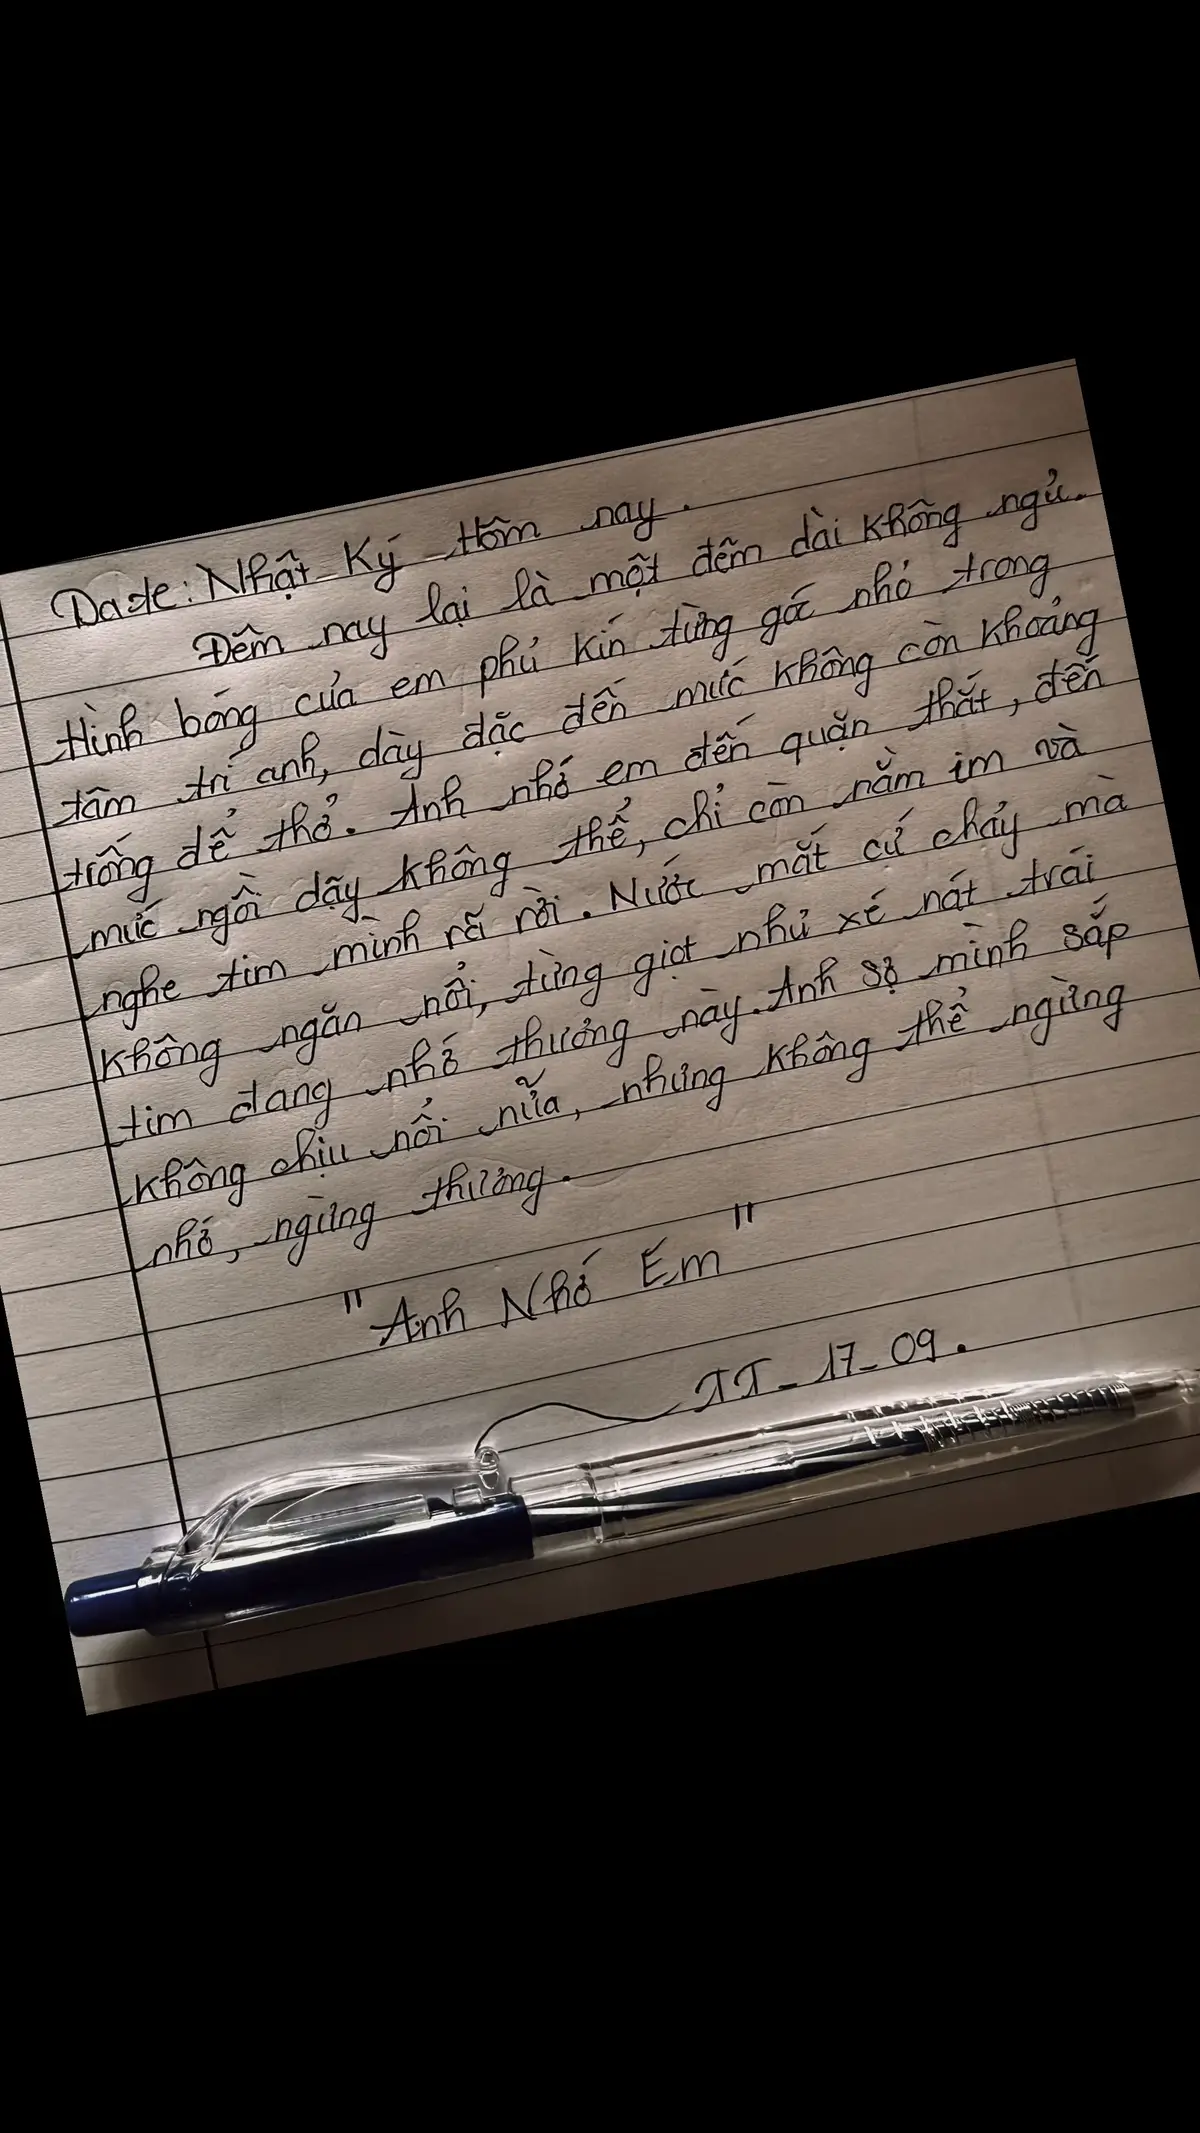 Date: Nhật Ký Hôm nay.
Đêm nay lại là một đêm dài không ngủ.
Hình bóng của em phủ kín từng góc nhỏ trong
tâm trí anh, dày đặc đến mức không còn khoảng
trống để thở. Anh nhớ em đến quặn thắt, đến
mức ngồi dậy không thể, chỉ còn nằm im và
nghe tim mình rã rời. Nước mắt cứ chảy mà
không ngăn nổi, từng giọt như xé nát trái
tim đang nhớ thương này. Anh sợ mình sắp
không chịu nổi nữa, nhưng không thể ngừng
nhớ, ngừng thương.
"Anh Nhớ Em"
TT - 17 - 09.